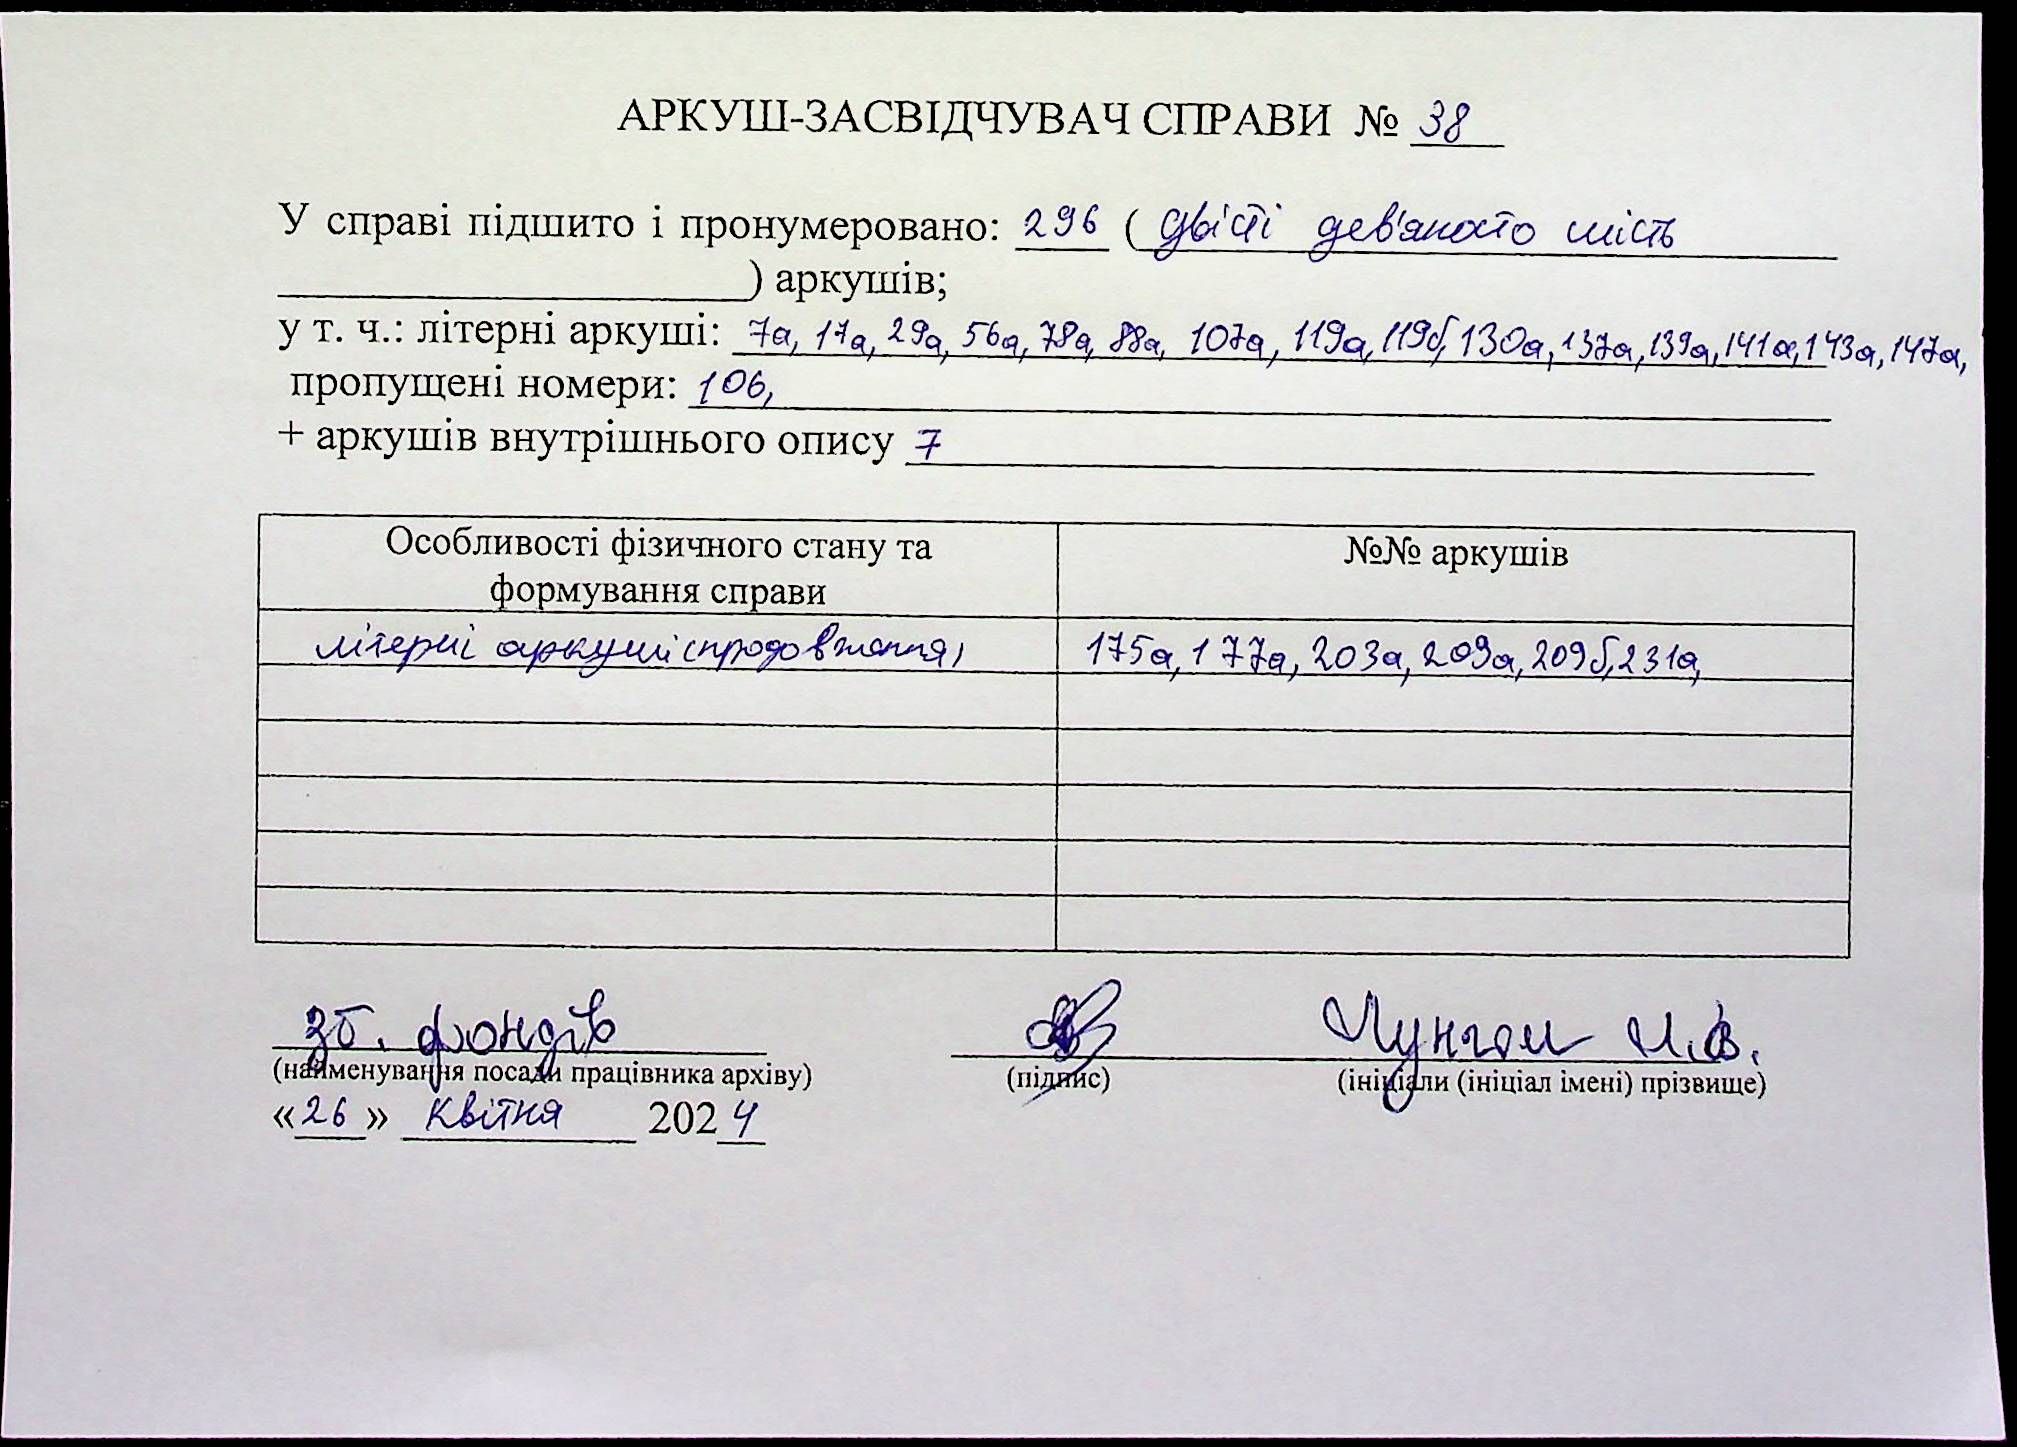 АРКУШ-ЗАСВІДЧУВАЧ СПРАВИ № 38
У справі підшито і пронумеровано: 296 ( двісті дев'яносто шість
) аркушів;
у т. ч.: літерні аркуші: 7а, 17а, 29а, 56а, 78а, 88а, 107а, 119а, 119б, 130а, 137а, 139а, 141а, 143а, 147а,
пропущені номери: 106,
+ аркушів внутрішнього опису 7
Особливості фізичного стану та
формування справи
№№ аркушів
літерні аркуші (продовження)
175а, 177а, 203а, 209а, 209б, 231а,
зб. фондів
И.В.
(найменування посади працівника архіву) (підпис) (ініціали (ініціал імені) прізвище)
«26» квітня 2024